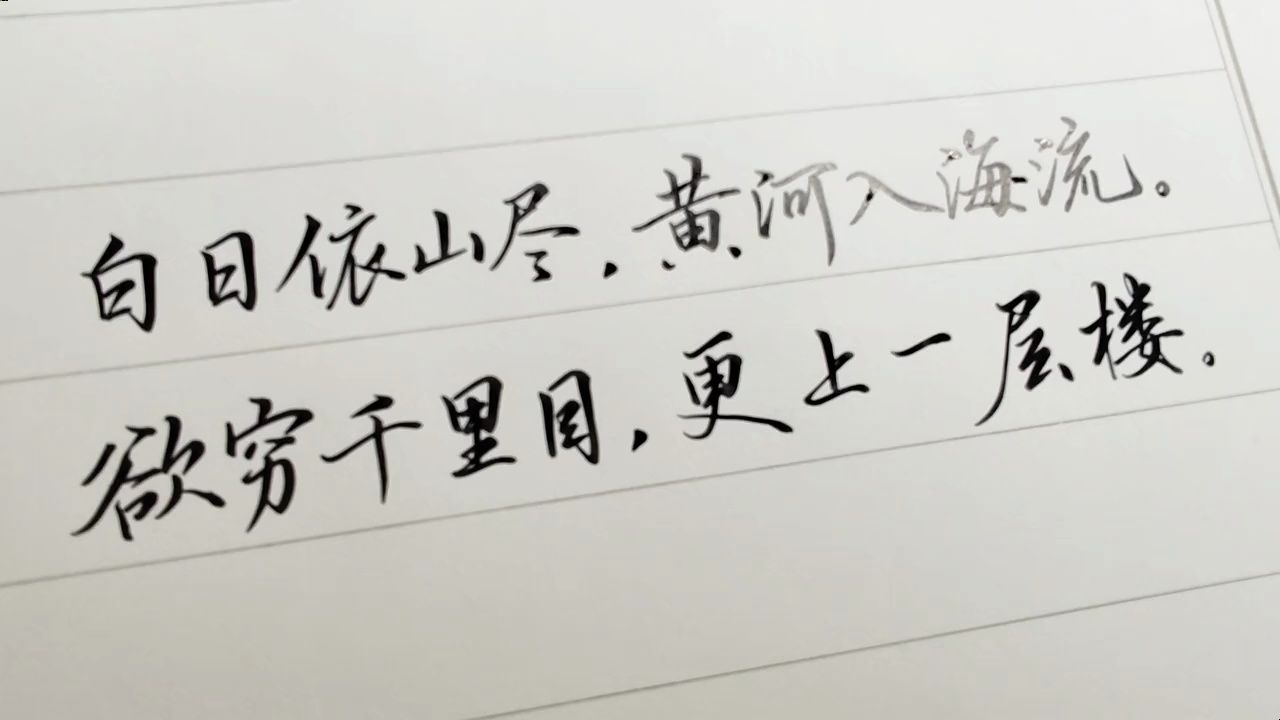 白日依山尽,黄河入海流。
欲穷千里目,更上一层楼。